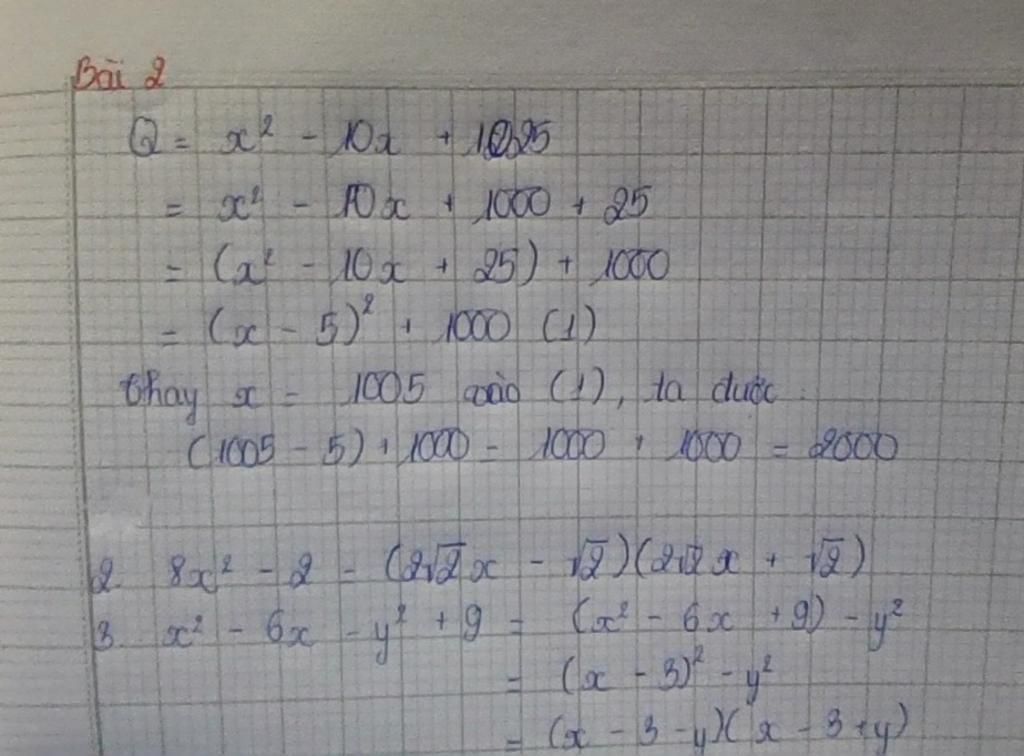 Bài 2
Q = x² - 10x + 1025
= x² - 10x + 1000 + 25
= (x² - 10x + 25) + 1000
= (x - 5)² + 1000 (1)
thay x = 1005 vào (1), ta được:
(1005 - 5) + 1000 = 1000 + 1000 = 2000
2. 8x² - 2 = (2√2x - √2)(2√2x + √2)
3. x² - 6x - y² + 9 = (x² - 6x + 9) - y²
= (x - 3)² - y²
= (x - 3 - y)(x - 3 + y)